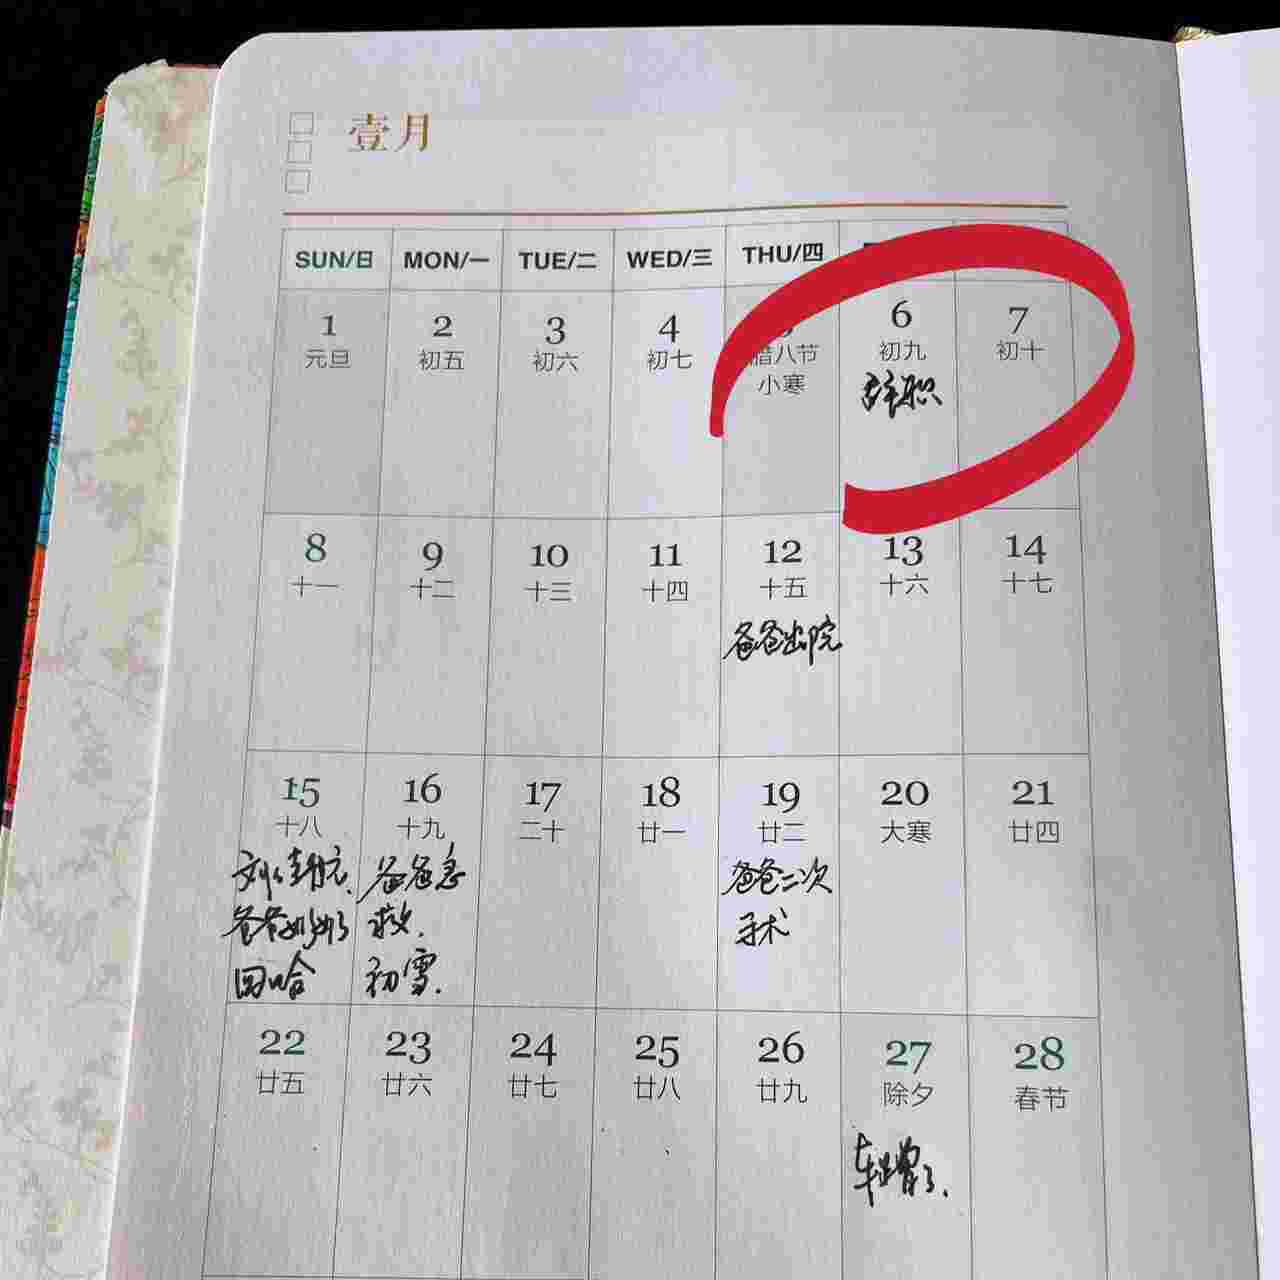 壹月
SUN/日 MON/一 TUE/二 WED/三 THU/四
1 2 3 4 6 7
元旦 初五 初六 初七 腊八节 初九 初十
小寒 辞职
8 9 10 11 12 13 14
十一 十二 十三 十四 十五 十六 十七
爸爸出院
15 16 17 18 19 20 21
十八 十九 二十 廿一 廿二 大寒 廿四
爸爸急 爸爸二次
爸爸妈妈 救. 手术
回哈 初雪.
22 23 24 25 26 27 28
廿五 廿六 廿七 廿八 廿九 除夕 春节